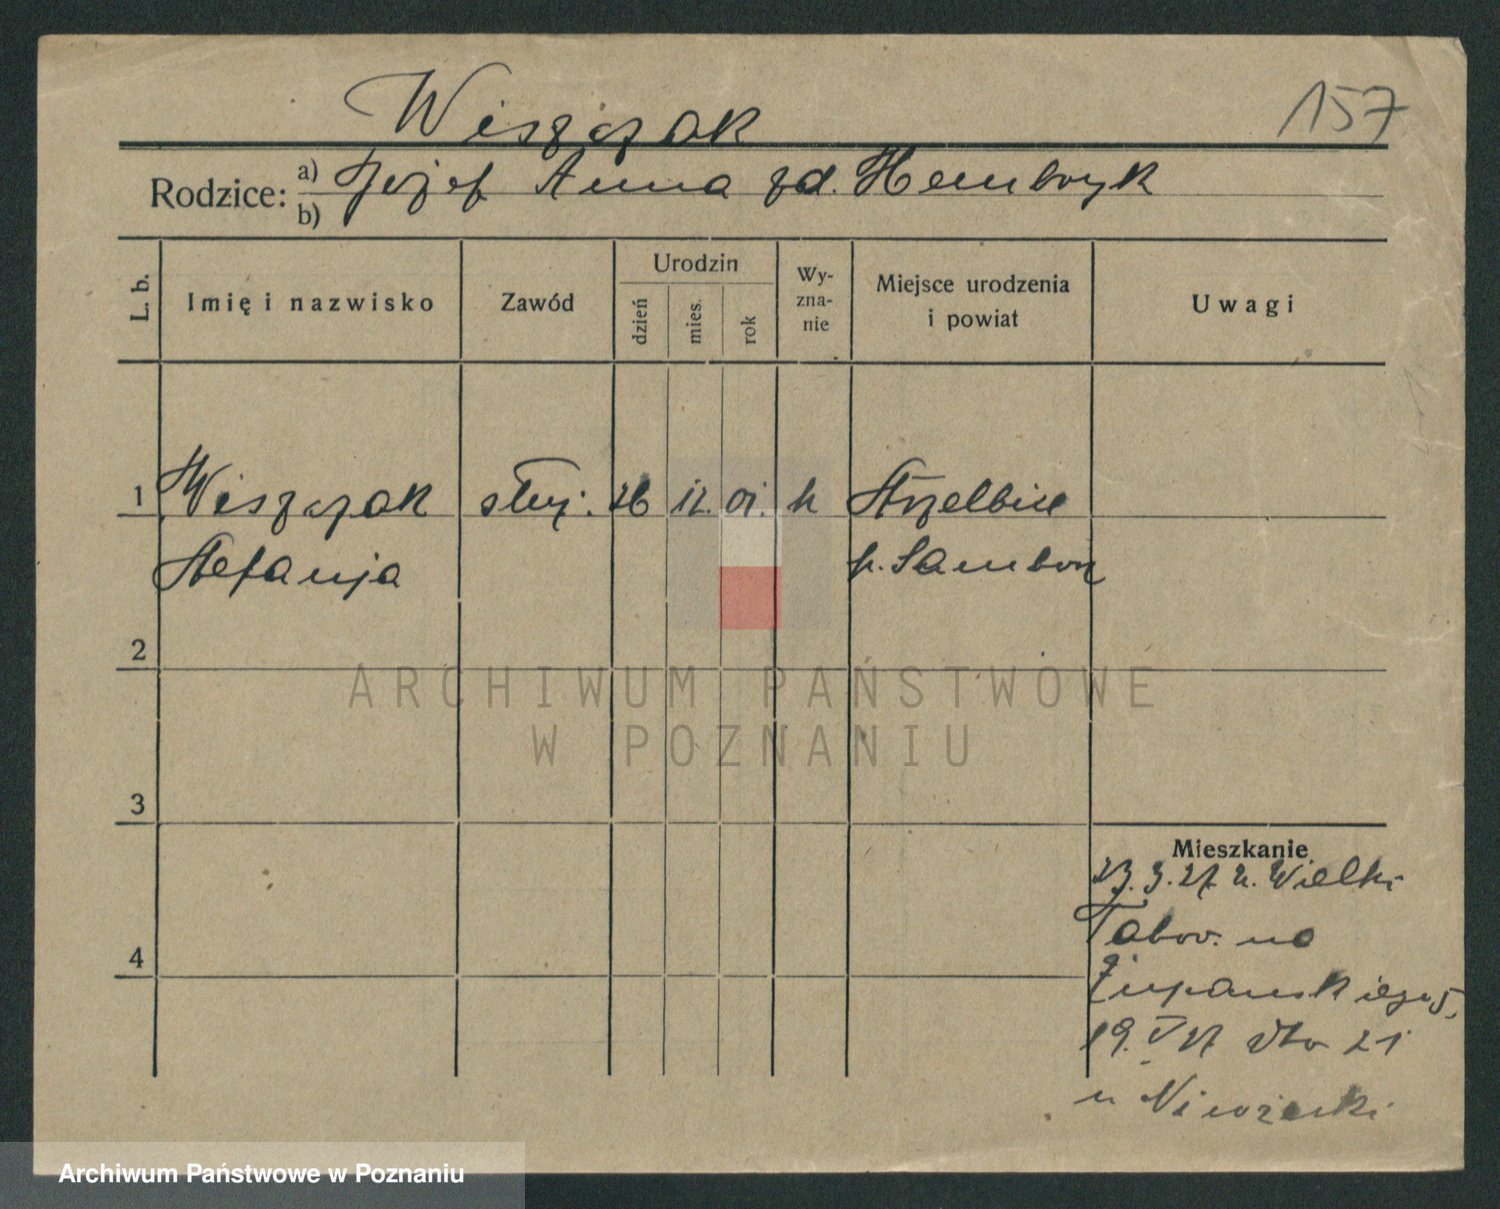 Wiszczak
157
Rodzice: a) Józef Anna zd. Hembryk
b)
L. b.
Imię i nazwisko
Zawód
Urodzin
dzień
mies.
rok
Wy-
zna-
nie
Miejsce urodzenia
i powiat
Uwagi
1 Wiszczak służ. 26 12. 01. k Strzelbice
Stefanja p. Sambor
2
3
4
ARCHIWUM PAŃSTWOWE
W POZNANIU
Mieszkanie
23.3.27 z. Wielki
Tabor. na
Żupańskiego 5,
19. V 27 dto 21
u
Archiwum Państwowe w Poznaniu